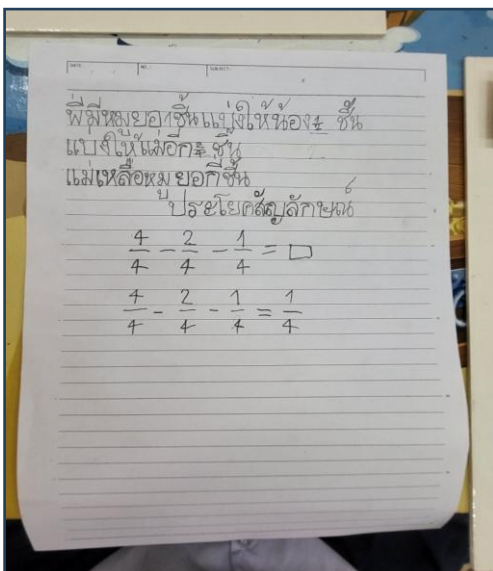 DATE NO.: SUBJECT:
พี่มีหมูยอ1ชิ้นแบ่งให้น้อง ชิ้น
แบ่งให้แม่อีก ชิ้น
แม่เหลือหมูยอกี่ชิ้น
ประโยคสัญลักษณ์
4/4 - 2/4 - 1/4 = □
4/4 - 2/4 - 1/4 = 1/4